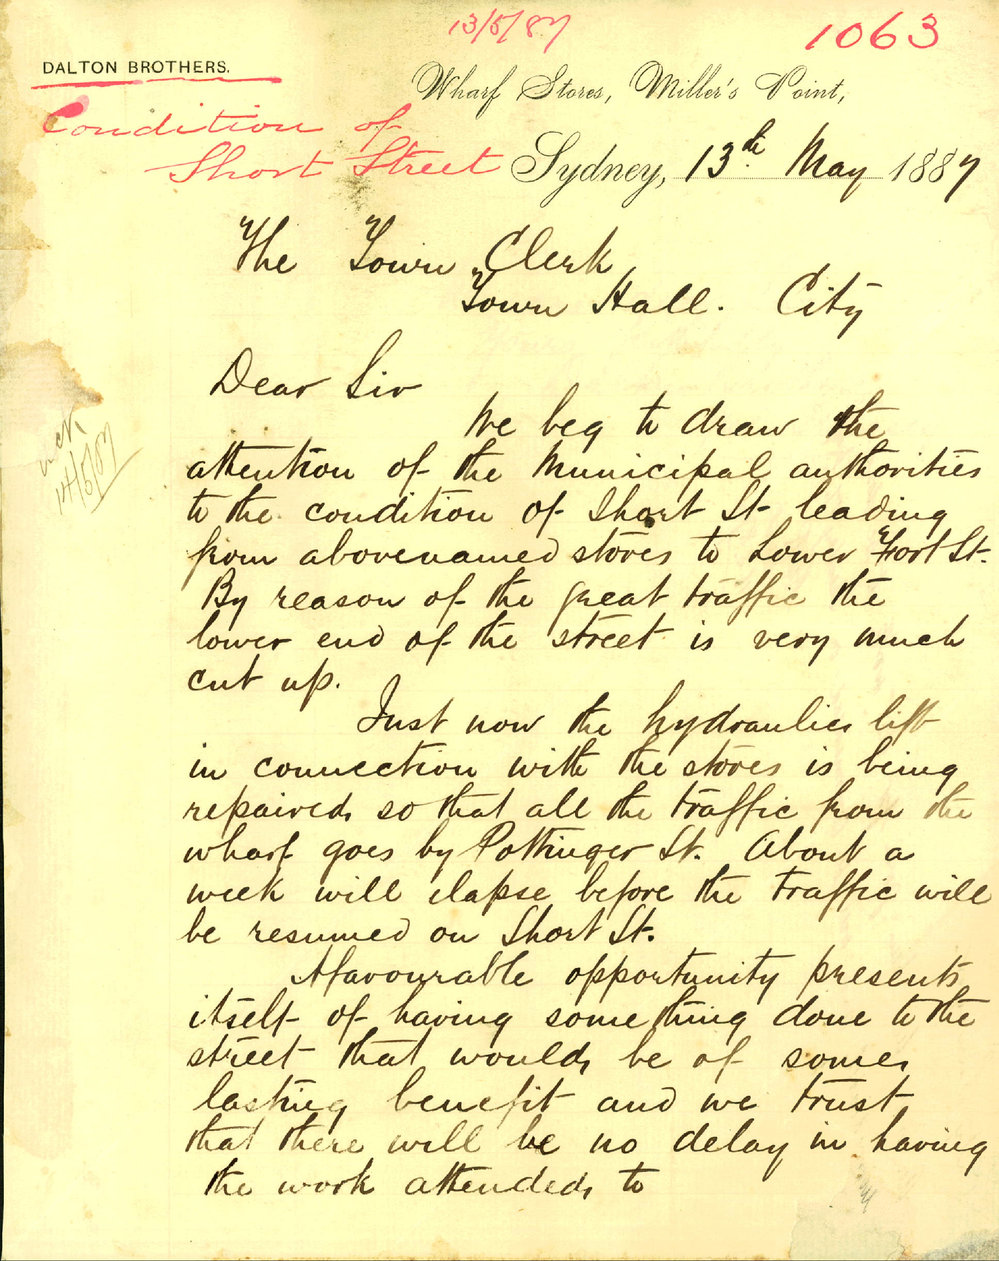 13/5/87
1063
DALTON BROTHERS.
Wharf Stores, Miller's Point,
Condition of
Short Street
Sydney, 13th May 1887
The Town Clerk
Town Hall. City
Dear Sir
14/5/87
We beg to draw the
attention of the Municipal authorities
to the condition of Short St leading
from abovenamed stores to Lower Fort St.
By reason of the great traffic the
lower end of the street is very much
cut up.
Just now the hydraulic lift
in connection with the stores is being
repaired so that all the traffic from the
wharf goes by Pottinger St. About a
week will elapse before the traffic will
be resumed on Short St.
A favourable opportunity presents
itself of having something done to the
street that would be of some
lasting benefit and we trust
that there will be no delay in having
the work attended to